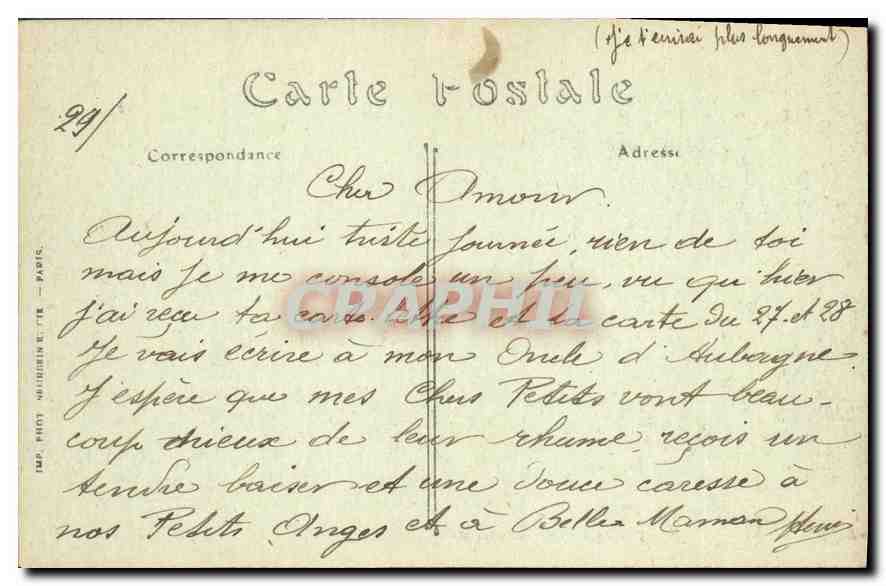 (Je t'écrirai plus longuement)
Carte Postale
29/
Correspondance
Adresse
Cher Amour.
Aujourd'hui triste journée, rien de toi
mais je me console un peu, vu qu'hier
j'ai reçu ta carte et la carte du 27 et 28
Je vais écrire à mon Oncle d'Aubergne.
J'espère que mes Chers Petits vont beau-
coup mieux de leur rhume, reçois un
tendre baiser et une douce caresse à
nos Petits Anges et à Belle Maman Henri
IMP. PHOT. NEURDEIN ET CIE. — PARIS.
CPAPHIL